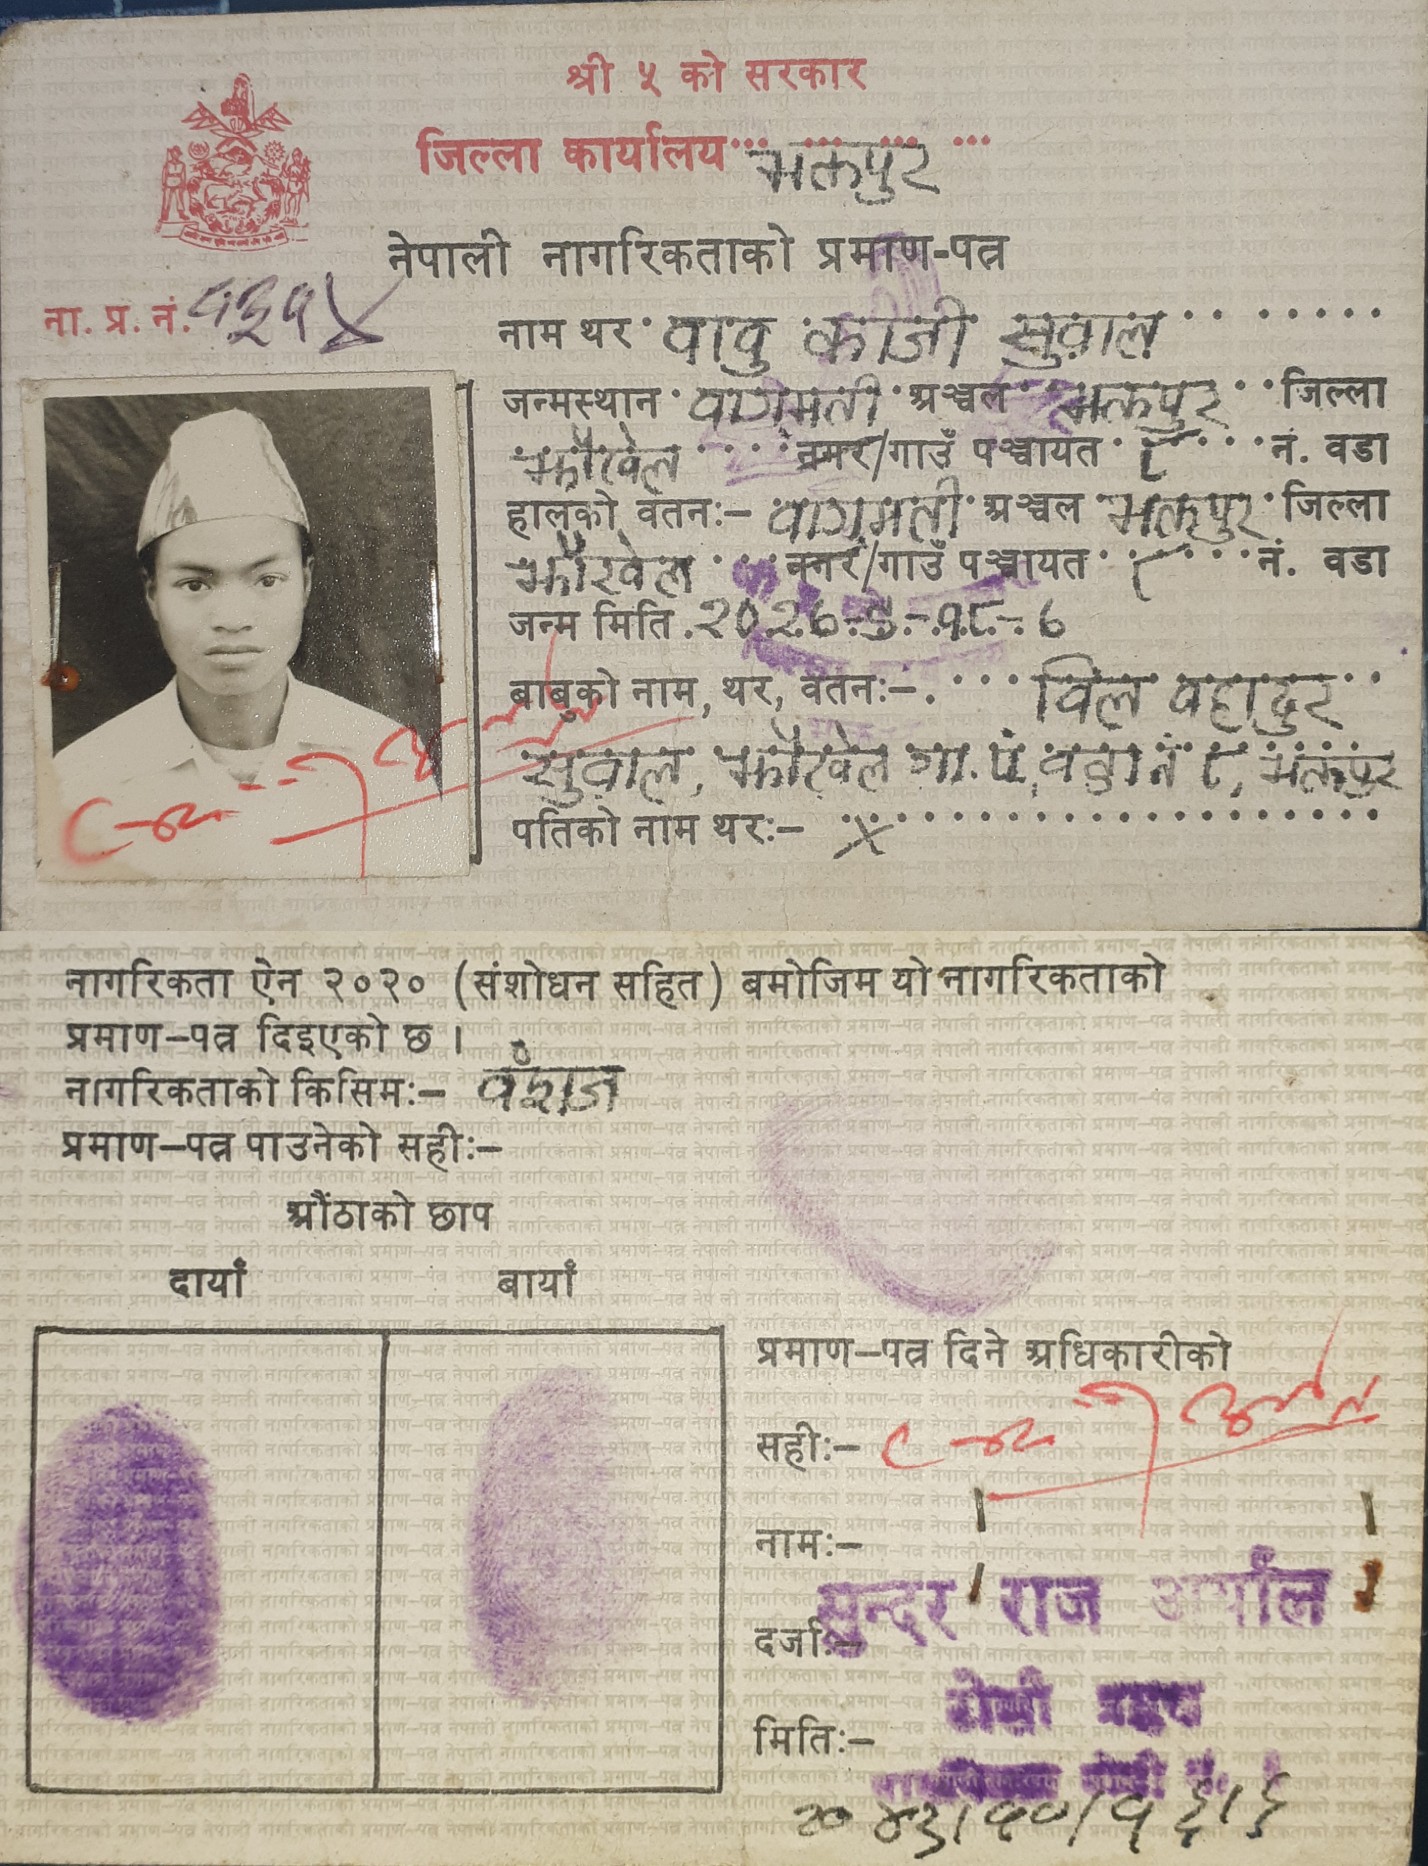 श्री ५ को सरकार
जिल्ला कार्यालय भक्तपुर
नेपाली नागरिकताको प्रमाण-पत्र
ना. प्र. नं. १३१४
नाम थर वावु काजी सुवाल
जन्मस्थान वागमती अञ्चल भक्तपुर जिल्ला
झौखेल नगर/गाउँ पञ्चायत ८ नं. वडा
हालको वतनः– वागमती अञ्चल भक्तपुर जिल्ला
झौखेल नगर/गाउँ पञ्चायत ८ नं. वडा
जन्म मिति
बाबुको नाम, थर, वतनः– विल वहादुर
सुवाल, झौखेल गा. पं. वडा नं ८, भक्तपुर
पतिको नाम थरः– ×
नागरिकता ऐन २०२० (संशोधन सहित) बमोजिम यो नागरिकताको
प्रमाण–पत्र दिइएको छ ।
नागरिकताको किसिमः– वंशज
प्रमाण–पत्र पाउनेको सहीः–
औंठाको छाप
दायाँ बायाँ
प्रमाण–पत्र दिने अधिकारीको
सहीः–
नामः–
सुन्दर राज अर्याल
दर्जाः–
टोली प्रमुख
मितिः–